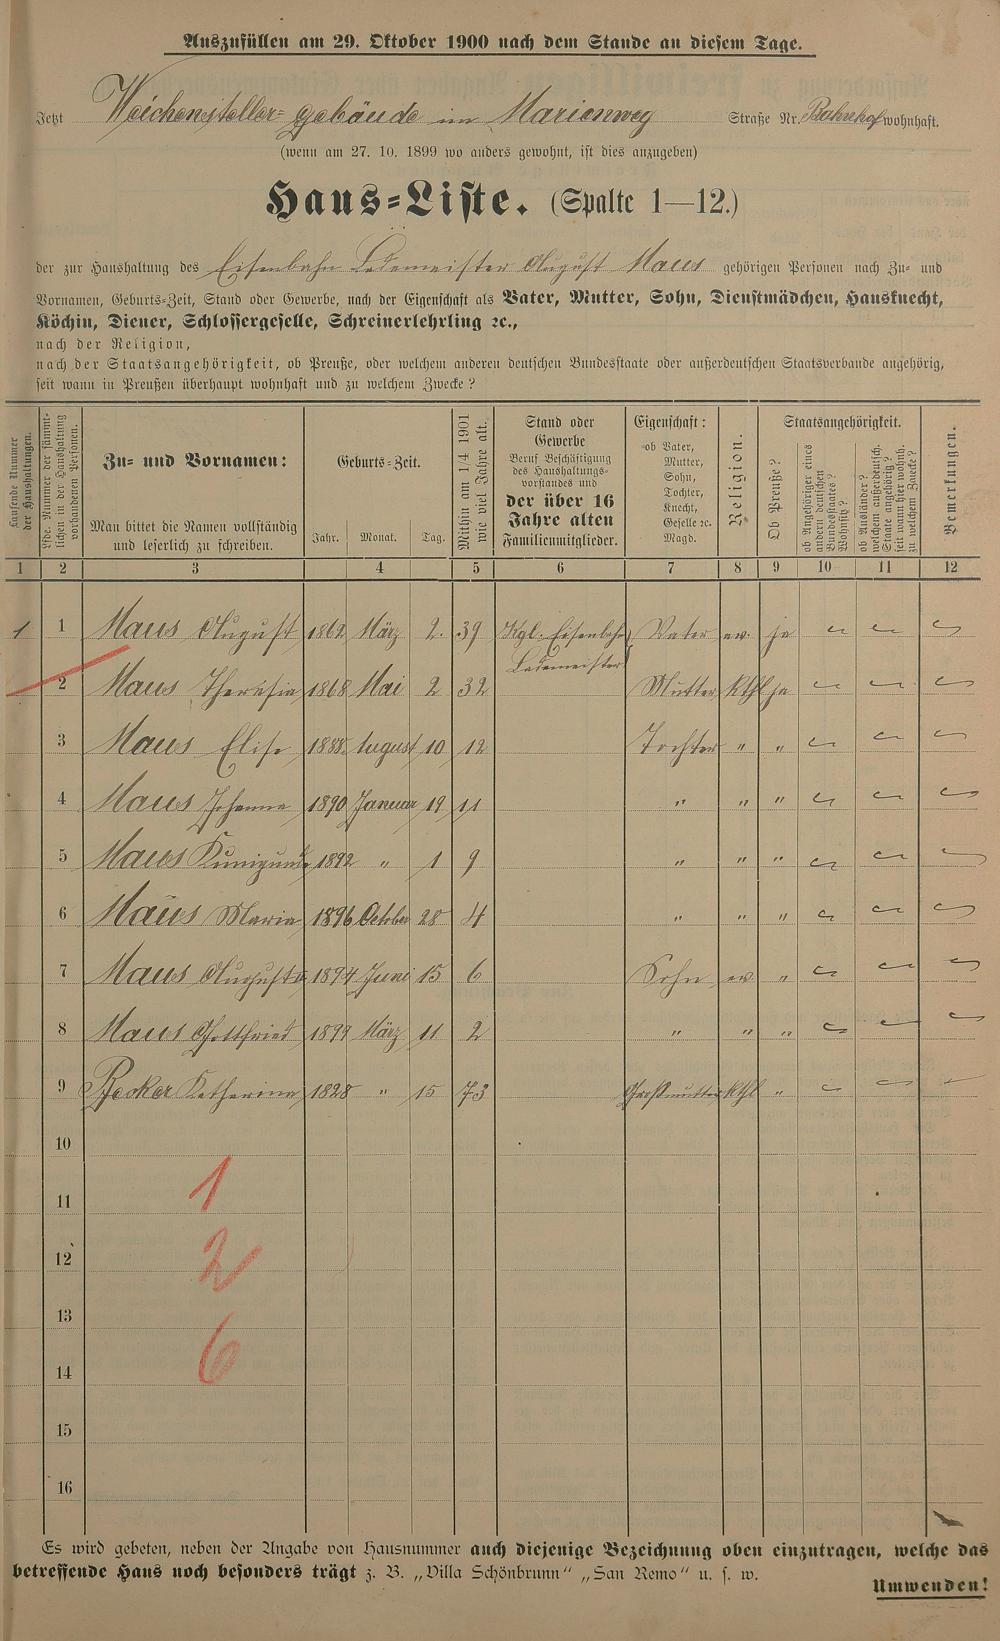 Auszufüllen am 29. Oktober 1900 nach dem Stande an diesem Tage.
Jetzt Weichensteller-gebäude im Marienweg Straße Nr. Bahnhof wohnhaft.
(wenn am 27. 10. 1899 wo anders gewohnt, ist dies anzugeben)
Haus-Liste. (Spalte 1—12.)
der zur Haushaltung des Eisenbahn Lademeister August Maus gehörigen Personen nach Zu- und
Vornamen, Geburts-Zeit, Stand oder Gewerbe, nach der Eigenschaft als Vater, Mutter, Sohn, Dienstmädchen, Hausknecht,
Köchin, Diener, Schlossergeselle, Schreinerlehrling ꝛc.,
nach der Religion,
nach der Staatsangehörigkeit, ob Preuße, oder welchem anderen deutschen Bundesstaate oder außerdeutschen Staatsverbande angehörig,
seit wann in Preußen überhaupt wohnhaft und zu welchem Zwecke?
Laufende Nummer der Haushaltungen.
Lfde. Nummer der sämmtlichen in der Haushaltung vorhandenen Personen.
Zu- und Vornamen:
Man bittet die Namen vollständig
und leserlich zu schreiben.
Geburts-Zeit.
Jahr. Monat. Tag.
Mithin am 1/4 1901 wie viel Jahre alt.
Stand oder
Gewerbe
Beruf Beschäftigung
des Haushaltungs-
vorstandes und
der über 16
Jahre alten
Familienmitglieder.
Eigenschaft:
ob Vater,
Mutter,
Sohn,
Tochter,
Knecht,
Geselle ꝛc.
Magd.
Religion.
Staatsangehörigkeit.
Ob Preuße?
ob Angehöriger eines andern deutschen Bundesstaates? Wohnsitz?
ob Ausländer? welchem außerdeutsch. Staate angehörig? seit wann hier wohnh. zu welchem Zwecke?
Bemerkungen.
1 2 3 4 5 6 7 8 9 10 11 12
1 1 Maus August 1862 März 2. 39 Kgl. Eisenbahn Lademeister Vater ev. ja
2 Maus Theresia 1868 Mai 2 32 Mutter kthl ja
3 Maus Elise 1888 August 10 12 Tochter " "
4 Maus Johanna 1890 Januar 19 11 " " "
5 Maus Kunigunde 1892 " 1 9 " " "
6 Maus Maria 1896 October 28 4 " " "
7 Maus August 1894 Juni 15 6 Sohn ev. "
8 Maus Gottfried 1899 März 11 2 " " "
9 Becker Katharina 1828 " 15 73 Großmutter kthl "
10
11
12
13
14
15
16
1
2
6
Es wird gebeten, neben der Angabe von Hausnummer auch diejenige Bezeichnung oben einzutragen, welche das
betreffende Haus noch besonders trägt z. B. „Villa Schönbrunn“ „San Remo“ u. s. w.
Umwenden!